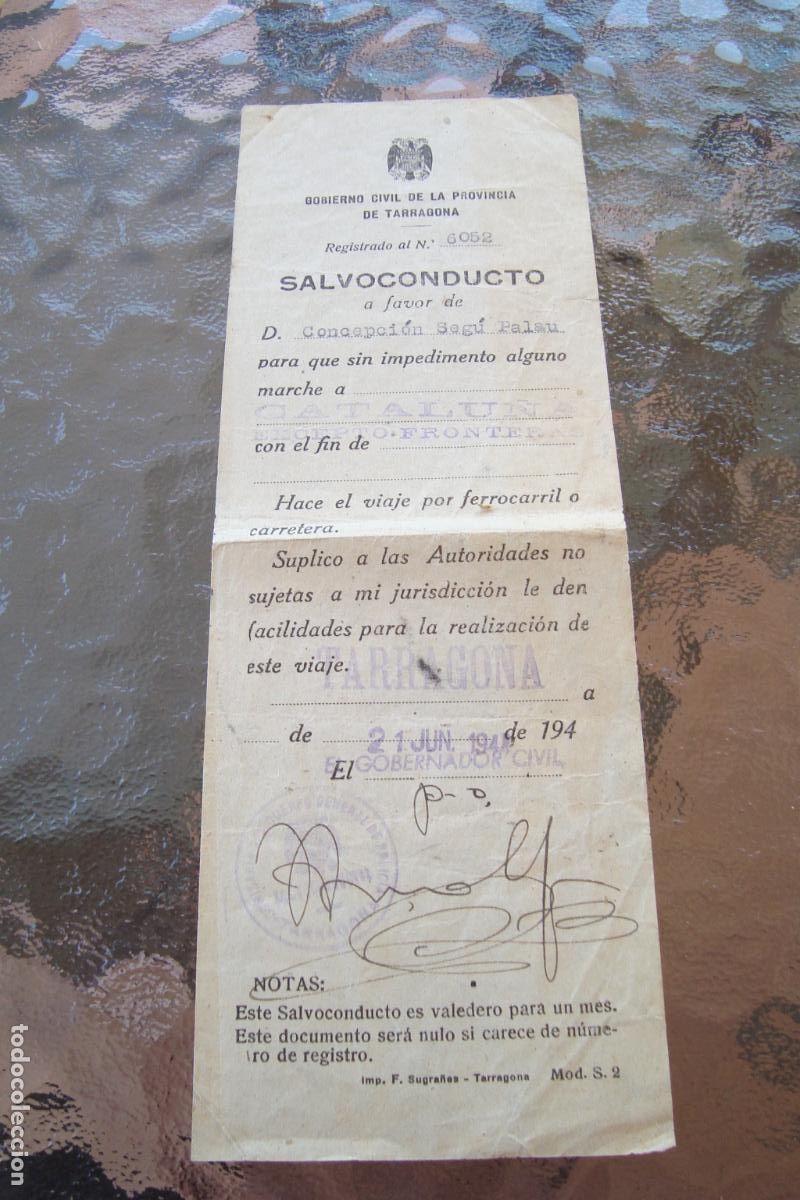 GOBIERNO CIVIL DE LA PROVINCIA
DE TARRAGONA
Registrado al N.° 6052
SALVOCONDUCTO
a favor de
D. Concepción Segú Palau
para que sin impedimento alguno
marche a
CATALUÑA
EXCEPTO FRONTERAS
con el fin de
Hace el viaje por ferrocarril o
carretera.
Suplico a las Autoridades no
sujetas a mi jurisdicción le den
facilidades para la realización de
este viaje.
TARRAGONA
a
de 21 JUN. 194 de 194
El GOBERNADOR CIVIL
p.o.
NOTAS:
Este Salvoconducto es valedero para un mes.
Este documento será nulo si carece de núme-
ro de registro.
Imp. F. Sugrañes - Tarragona Mod. S. 2
todocoleccion